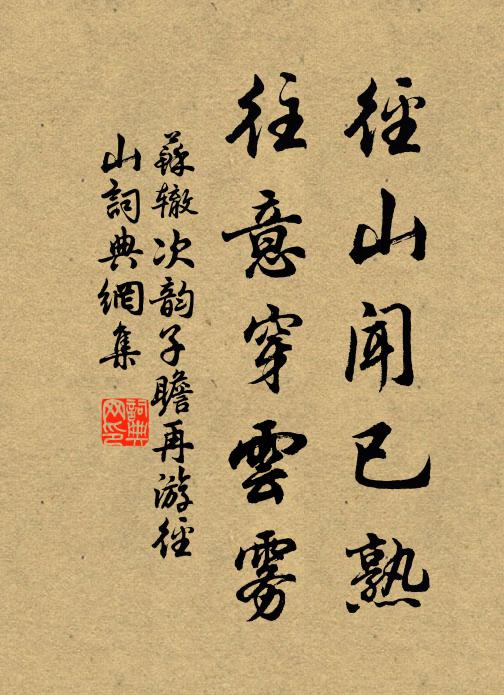 徑山聞已熟
往意穿雲霧
蘇辙次韵子瞻再游徑
山詞典網集
詞典
网印